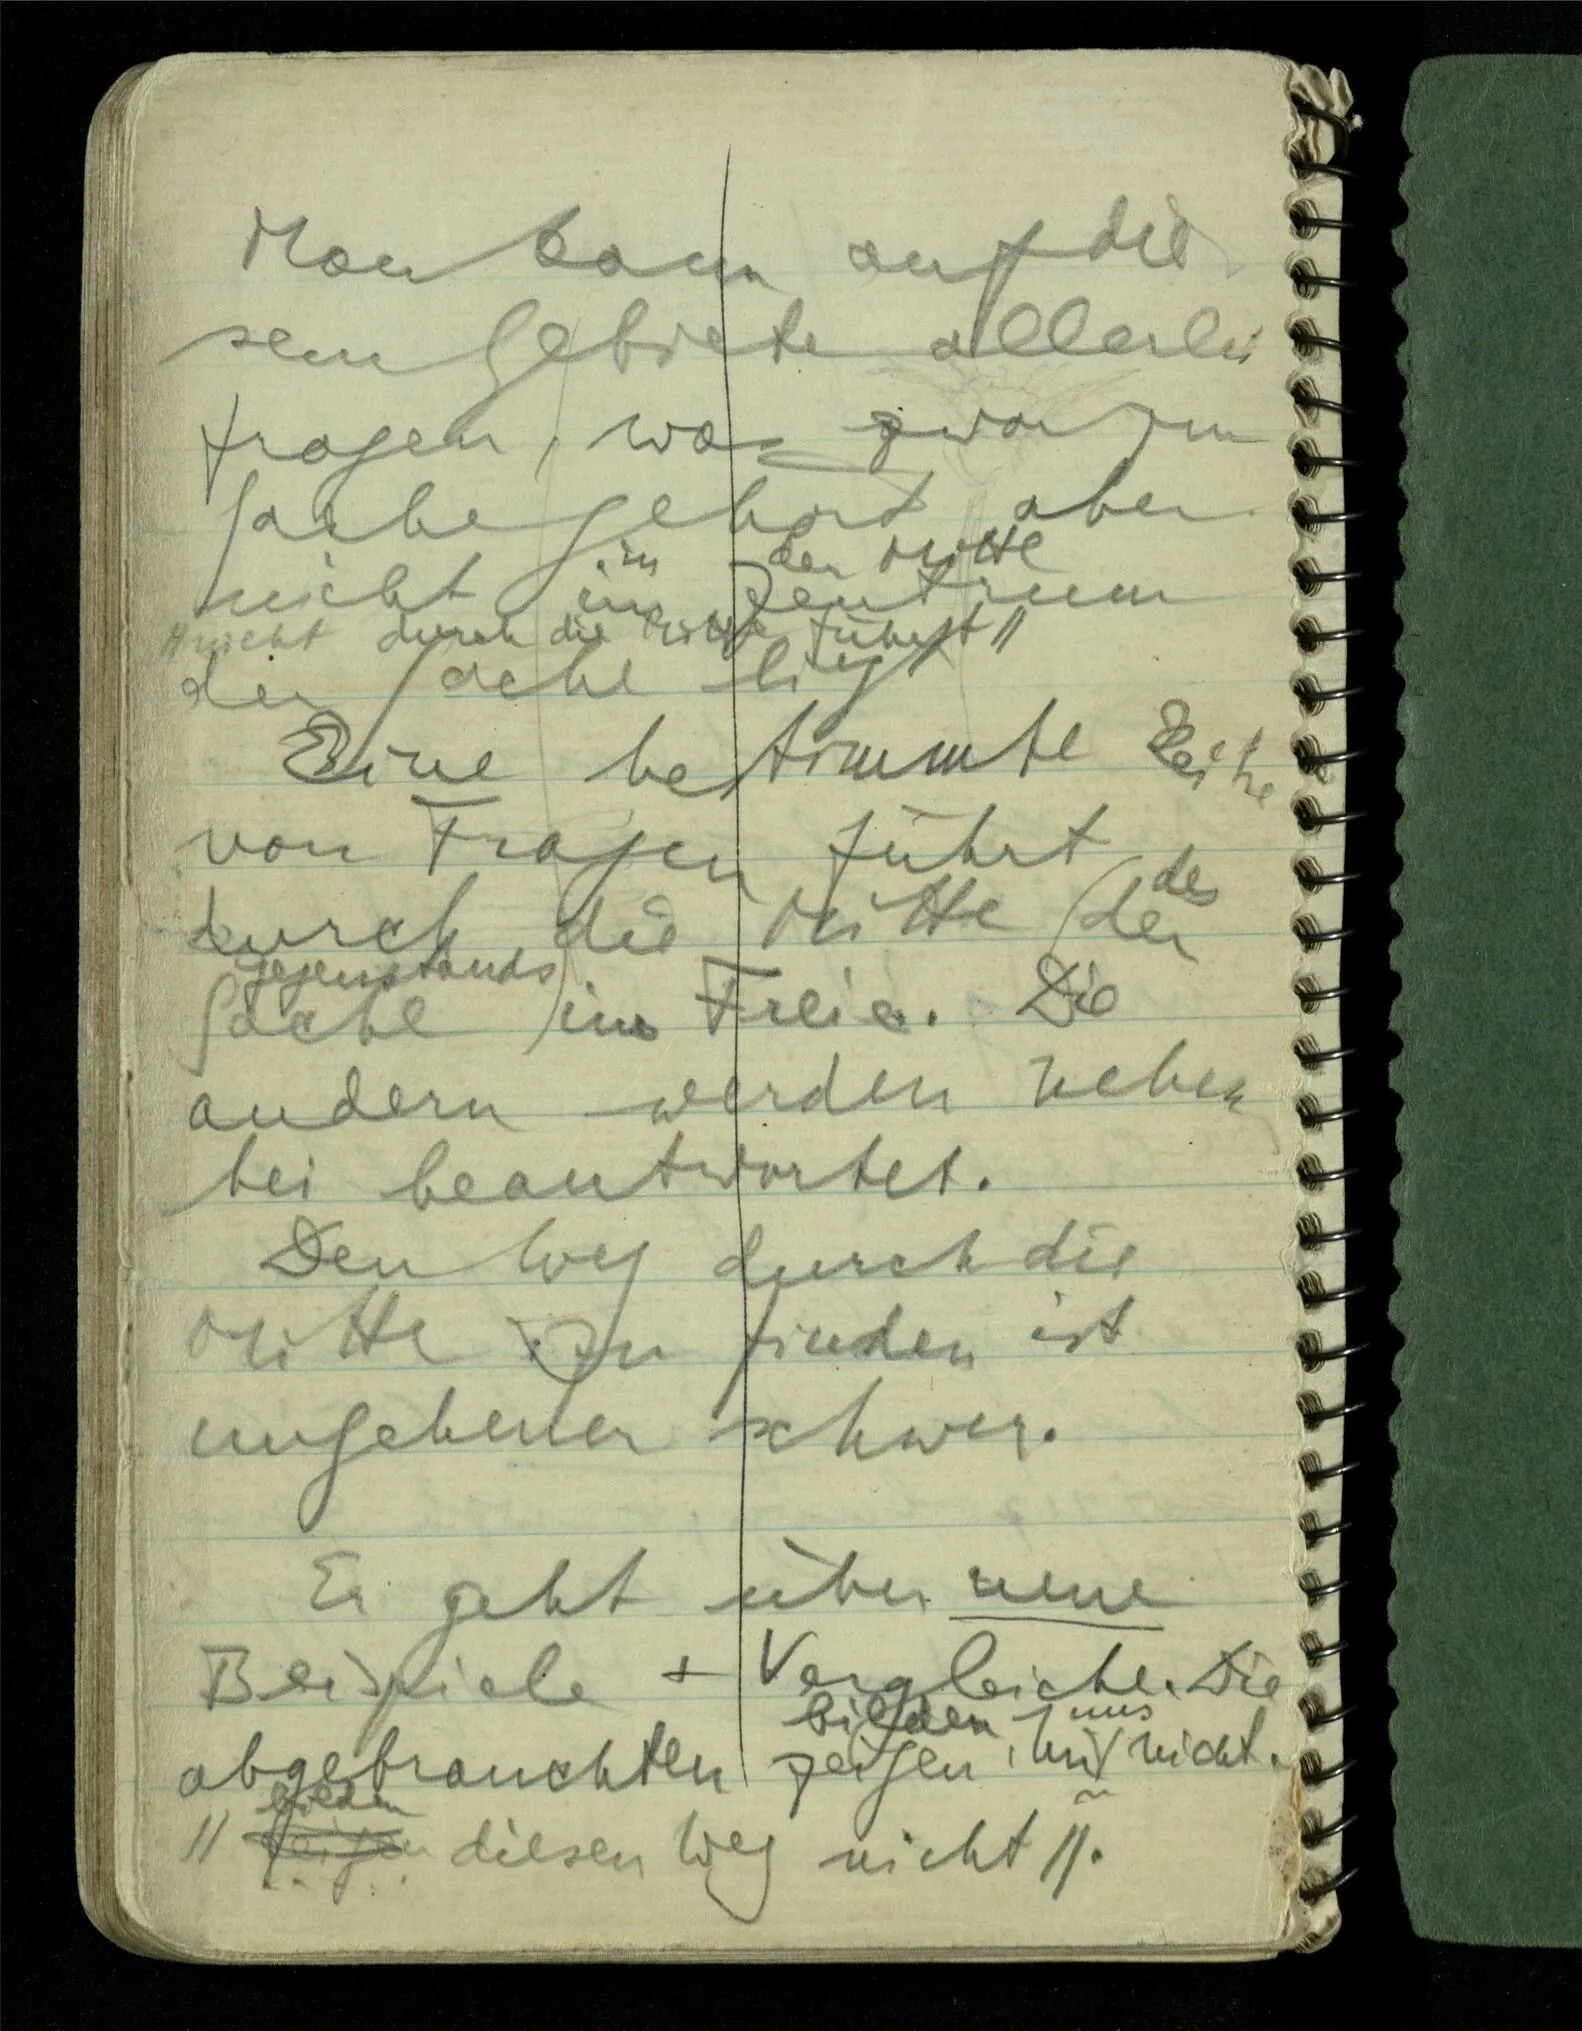 Man kann auf die
sem Gebiete allerlei
fragen, was zwar zur
Sache gehört aber
in der Mitte
nicht im Zentrum
// nicht durch die Mitte führt //
der Sache liegt
Eine bestimmte Reihe
von Fragen führt
des
durch die Mitte (der
Gegenstands
Sache) ins Freie. Die
andern werden neben
bei beantwortet.
Den Weg durch die
Mitte zu finden ist
ungeheuer schwer.
Er geht über neue
Beispiele + Vergleiche. Die
bilden uns
abgebrauchten zeigen ihn nicht.
bilden
// zeigen diesen Weg nicht //.